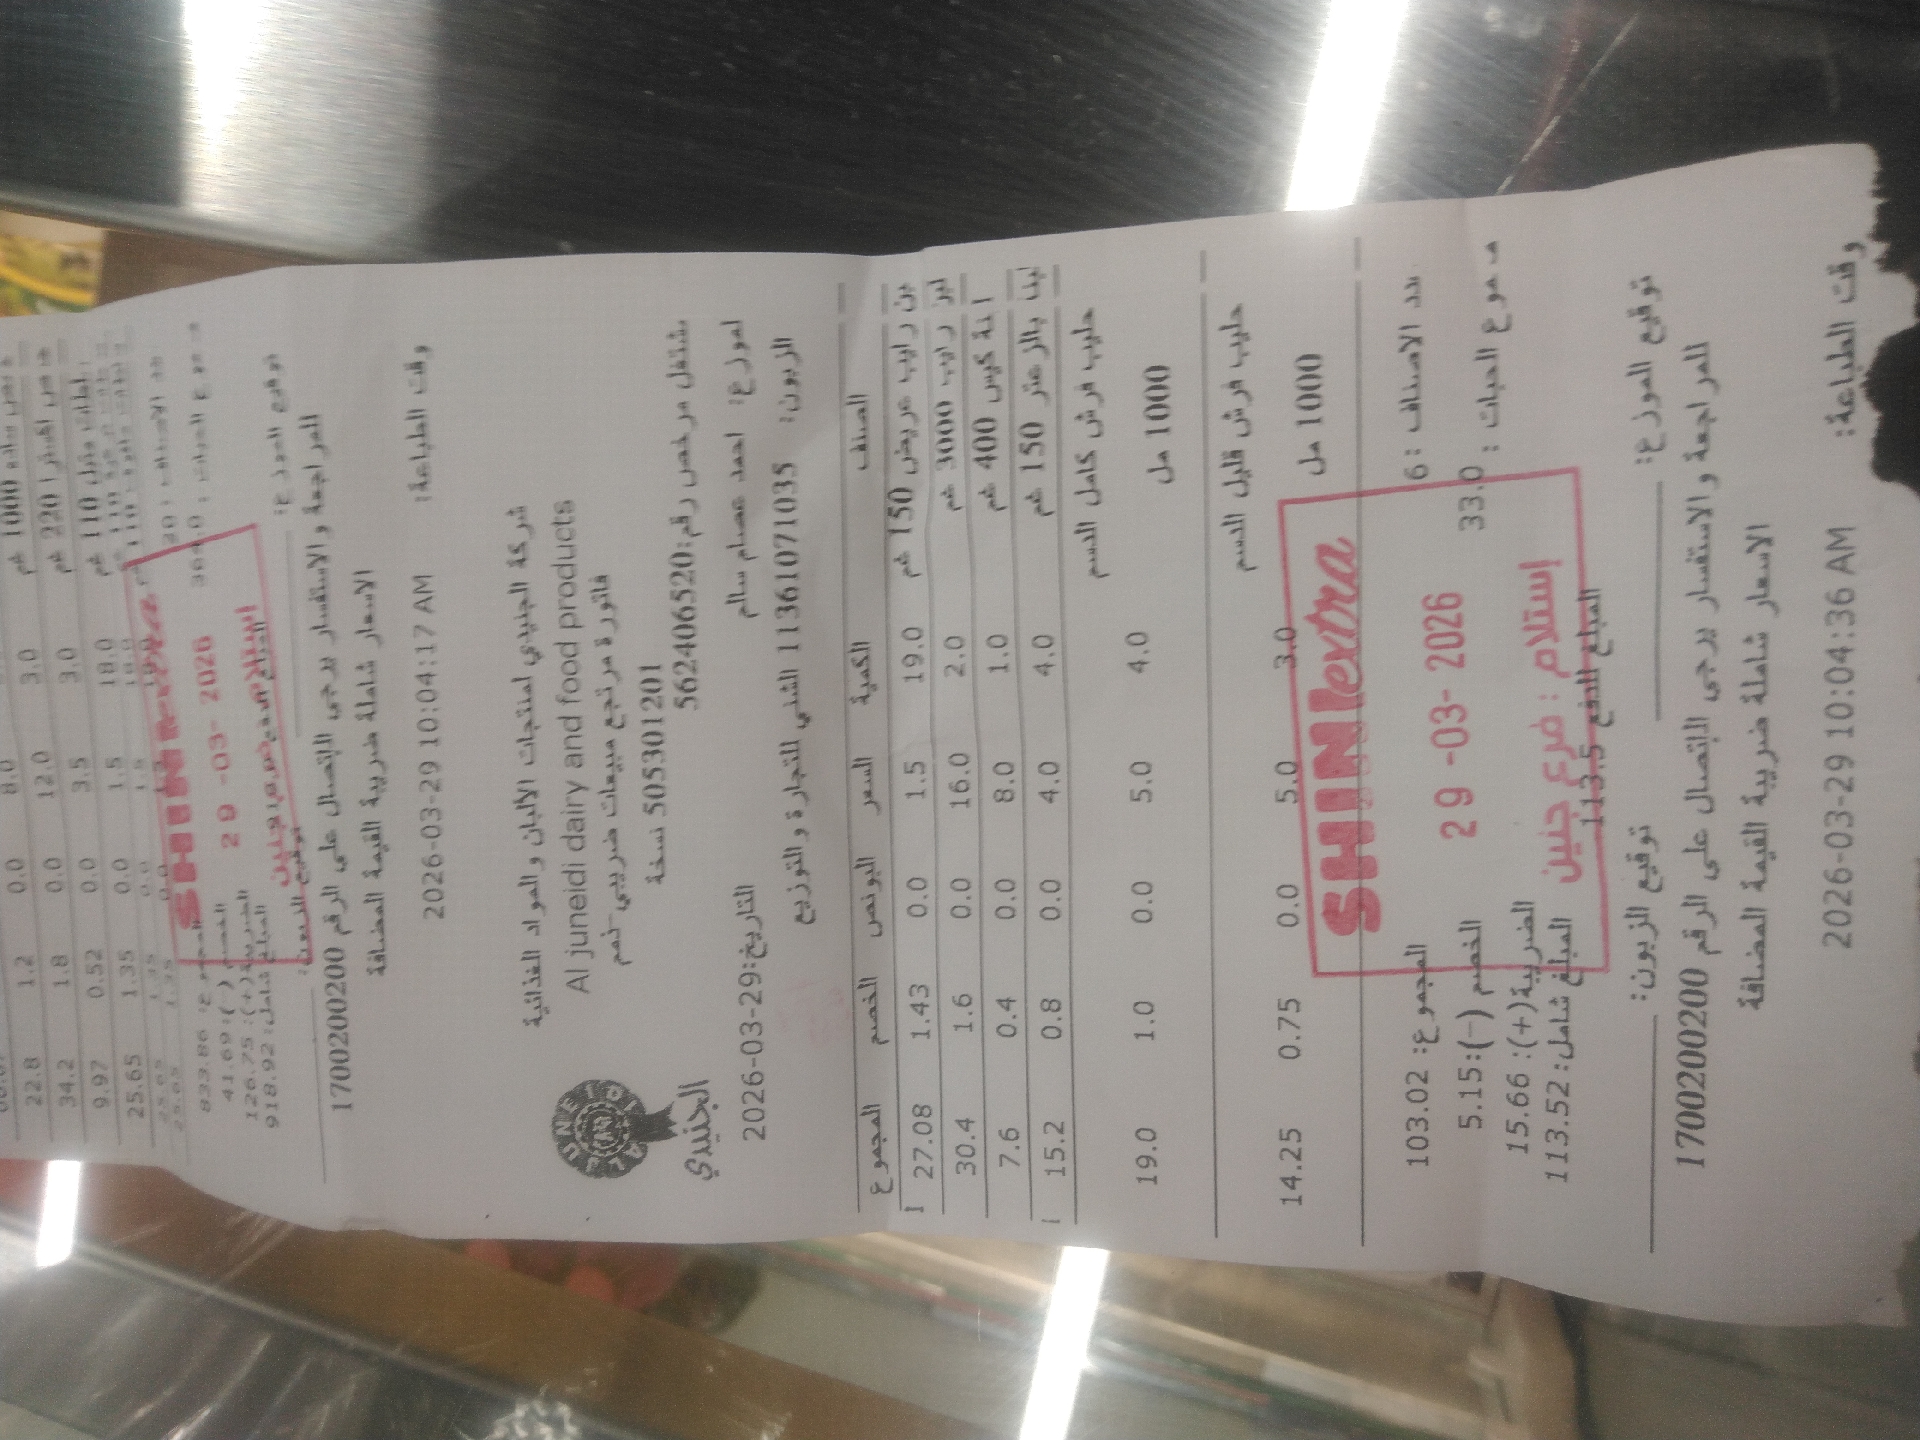 1000 غم 3.0 8.0 0.0 1.2 22.8
220 غم 3.0 12.0 0.0 1.8 34.2
110 غم 18.0 3.5 0.0 0.52 9.97
18.0 1.5 0.0 1.35 25.65
المجموع: 833.86
الخصم (-): 41.69
الضريبة(+): 126.75
المبلغ شامل: 918.92
SHINI extra
29 -03- 2026
توقيع الموزع:
للمراجعة والاستفسار يرجى الاتصال على الرقم 1700200200
الاسعار شاملة ضريبة القيمة المضافة
وقت الطباعة: 2026-03-29 10:04:17 AM
شركة الجنيدي لمنتجات الالبان والمواد الغذائية
Al juneidi dairy and food products
فاتورة مرتجع مبيعات ضريبي
505301201 نسخة
مشتغل مرخص رقم:562406520
الجنيدي
الموزع: احمد عصام سالم
التاريخ:2026-03-29
الزبون: 11361071035 الشني للتجارة والتوزيع
الصنف الكمية السعر البونص الخصم المجموع
رايب عريض 150 غم 19.0 1.5 0.0 1.43 27.08
رايب 3000 غم 2.0 16.0 0.0 1.6 30.4
كيس 400 غم 1.0 8.0 0.0 0.4 7.6
150 غم 4.0 4.0 0.0 0.8 15.2
حليب فرش كامل الدسم
1000 مل 4.0 5.0 0.0 1.0 19.0
حليب فرش قليل الدسم
1000 مل 3.0 5.0 0.0 0.75 14.25
SHINI extra
29 -03- 2026
إستلام : فرع جنين
عدد الاصناف : 6
المجموع: 103.02
مجموع الحبات : 33.0
الخصم (-): 5.15
الضريبة(+): 15.66
المبلغ شامل: 113.52
المبلغ للدفع 113.5
توقيع الموزع:
توقيع الزبون:
للمراجعة والاستفسار يرجى الاتصال على الرقم 1700200200
الاسعار شاملة ضريبة القيمة المضافة
وقت الطباعة: 2026-03-29 10:04:36 AM